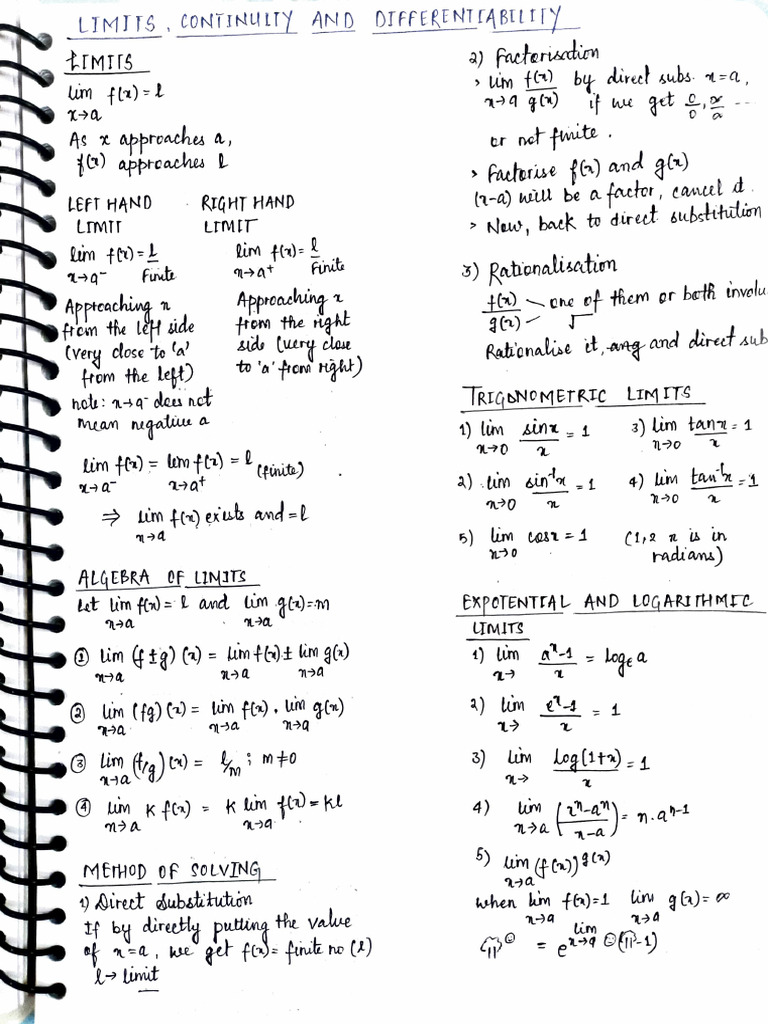 LIMITS, CONTINUITY AND DIFFERENTIABILITY
LIMITS
lim f(x) = l
x→a
As x approaches a,
f(x) approaches l
LEFT HAND LIMIT
lim f(x) = l
x→a⁻ Finite
Approaching x
from the left side
(very close to 'a'
from the left)
note: x→a⁻ does not
mean negative a
RIGHT HAND LIMIT
lim f(x) = l
x→a⁺ Finite
Approaching x
from the right
side (very close
to 'a' from right)
lim f(x) = lim f(x) = l (finite)
x→a⁻ x→a⁺
⇒ lim f(x) exists and = l
x→a
ALGEBRA OF LIMITS
Let lim f(x) = l and lim g(x) = m
x→a x→a
① lim (f ± g)(x) = lim f(x) ± lim g(x)
x→a x→a x→a
② lim (fg)(x) = lim f(x) . lim g(x)
x→a x→a x→a
③ lim (f/g)(x) = l/m ; m≠0
x→a
④ lim K f(x) = K lim f(x) = Kl
x→a x→a
METHOD OF SOLVING
1) Direct Substitution
If by directly putting the value
of x=a, we get f(x) = finite no (l)
l → limit
2) Factorisation
> lim f(x)/g(x) by direct subs. x=a,
x→a if we get 0/0, ∞/a ...
or not finite.
> Factorise f(x) and g(x)
(x-a) will be a factor, cancel it.
> Now, back to direct substitution
3) Rationalisation
f(x)/g(x) one of them or both involu
√
Rationalise it, and direct sub
TRIGONOMETRIC LIMITS
1) lim sinx/x = 1
x→0
2) lim sin⁻¹x/x = 1
x→0
3) lim tanx/x = 1
x→0
4) lim tan⁻¹x/x = 1
x→0
5) lim cosx = 1
x→0
(1,2 x is in
radians)
EXPOTENTIAL AND LOGARITHMIC
LIMITS
1) lim aˣ-1/x = logₑ a
x→
2) lim eˣ-1/x = 1
x→
3) lim log(1+x)/x = 1
x→
4) lim (xⁿ-aⁿ/x-a) = n.aⁿ⁻¹
x→a
5) lim (f(x))^g(x)
x→a
when lim f(x)=1 lim g(x)=∞
x→a x→a
= e^lim x→a